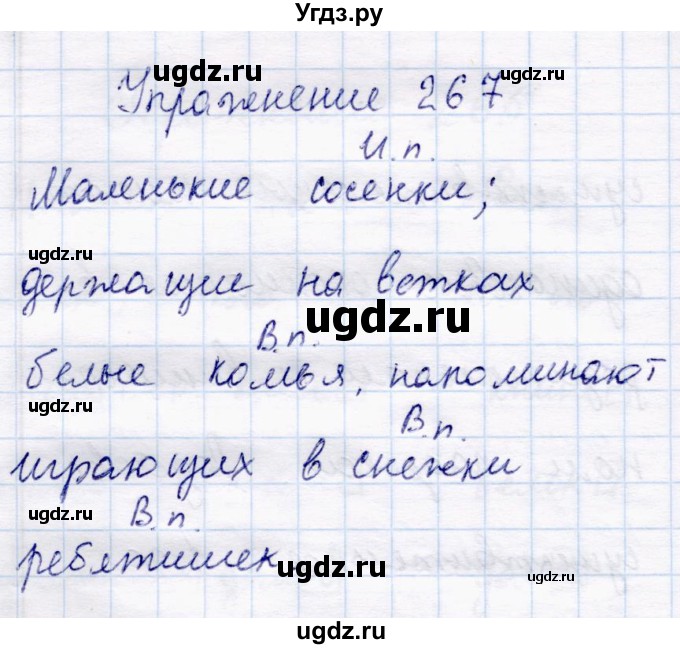 Угдз.ру
ugdz.ru
Упражнение 267
И.п.
Маленькие сосенки,
ugdz.ru
держащие на ветках
ugdz.ru
В.п.
белые комья, напоминают
ugdz.ru
В.п.
играющих в снежки
ugdz.ru
В.п.
ребятишек
ugdz.ru
ugdz.ru
ugdz.ru